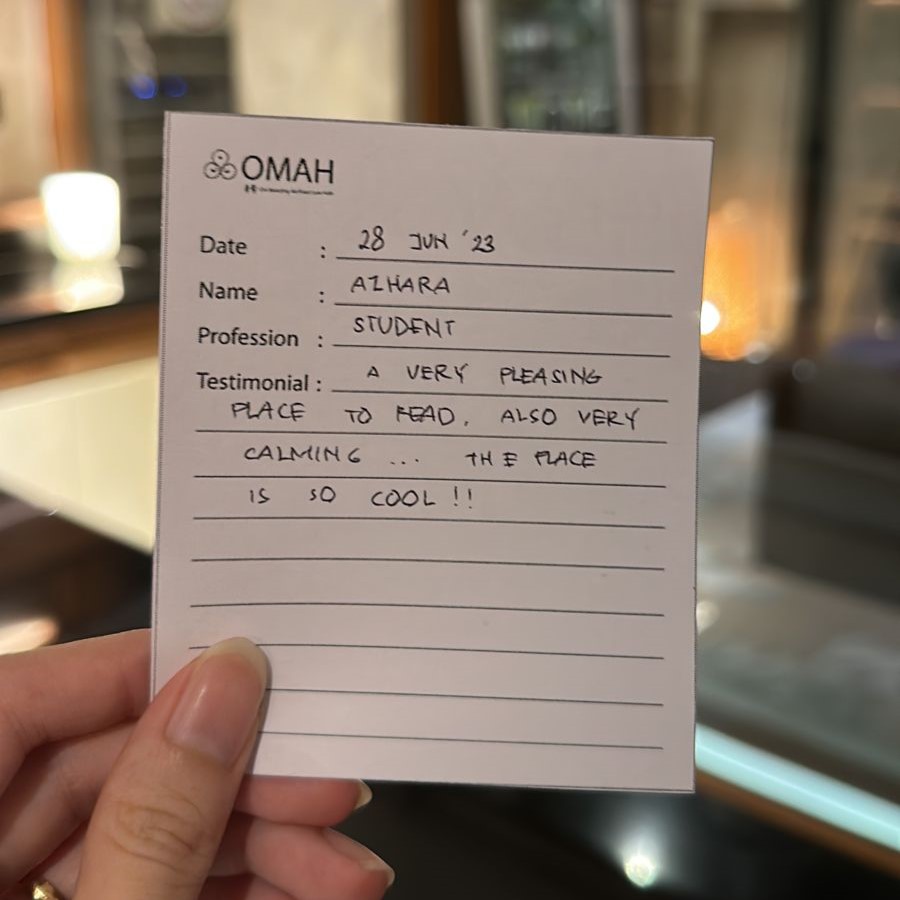 OMAH
Date : 28 JUN '23
Name : AZHARA
Profession : STUDENT
Testimonial : A VERY PLEASING
PLACE TO READ. ALSO VERY
CALMING ... THE PLACE
IS SO COOL !!